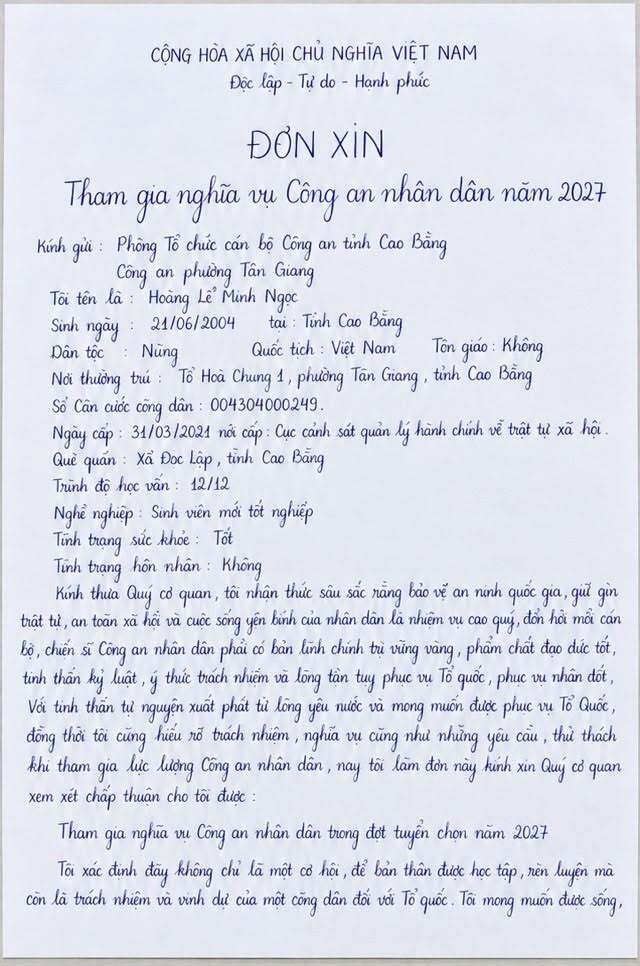 CỘNG HÒA XÃ HỘI CHỦ NGHĨA VIỆT NAM
Độc lập - Tự do - Hạnh phúc
ĐƠN XIN
Tham gia nghĩa vụ Công an nhân dân năm 2027
Kính gửi : Phòng Tổ chức cán bộ Công an tỉnh Cao Bằng
Công an phường Tân Giang
Tôi tên là : Hoàng Lể Minh Ngọc
Sinh ngày : 21/06/2004 tại : Tỉnh Cao Bằng
Dân tộc : Nùng Quốc tịch : Việt Nam Tôn giáo : Không
Nơi thường trú : Tổ Hoà Chung 1 , phường Tân Giang , tỉnh Cao Bằng
Số Căn cước công dân : 004304000249.
Ngày cấp : 31/03/2021 nơi cấp : Cục cảnh sát quản lý hành chính về trật tự xã hội .
Quê quán : Xã Đoc Lập , tỉnh Cao Bằng
Trình độ học vấn : 12/12
Nghề nghiệp : Sinh viên mới tốt nghiệp
Tình trạng sức khỏe : Tốt
Tình trạng hôn nhân : Không
Kính thưa Quý cơ quan , tôi nhận thức sâu sắc rằng bảo vệ an ninh quốc gia , giữ gìn
trật tự , an toàn xã hội và cuộc sống yên bính của nhân dân là nhiệm vụ cao quý , đòn hỏi mỗi cán
bộ , chiến sĩ Công an nhân dân phải có bản lĩnh chính trị vững vàng , phẩm chất đạo đức tốt ,
tinh thần kỷ luật , ý thức trách nhiệm và lòng tần tuy phục vụ Tổ quốc , phục vụ nhân dốt ,
Với tinh thần tự nguyện xuất phát từ lòng yêu nước và mong muốn được phục vụ Tổ Quốc ,
đồng thời tôi cũng hiểu rõ trách nhiệm , nghĩa vụ cũng như những yêu cầu , thử thách
khi tham gia lực lượng Công an nhân dân , nay tôi làm đơn này kính xin Quý cơ quan
xem xét chấp thuận cho tôi được :
Tham gia nghĩa vụ Công an nhân dân trong đợt tuyển chọn năm 2027
Tôi xác định đây không chỉ là một cơ hội , để bản thân được học tập , rèn luyện mà
còn là trách nhiệm và vinh dự của một công dân đối với Tổ quốc . Tôi mong muốn được sống ,